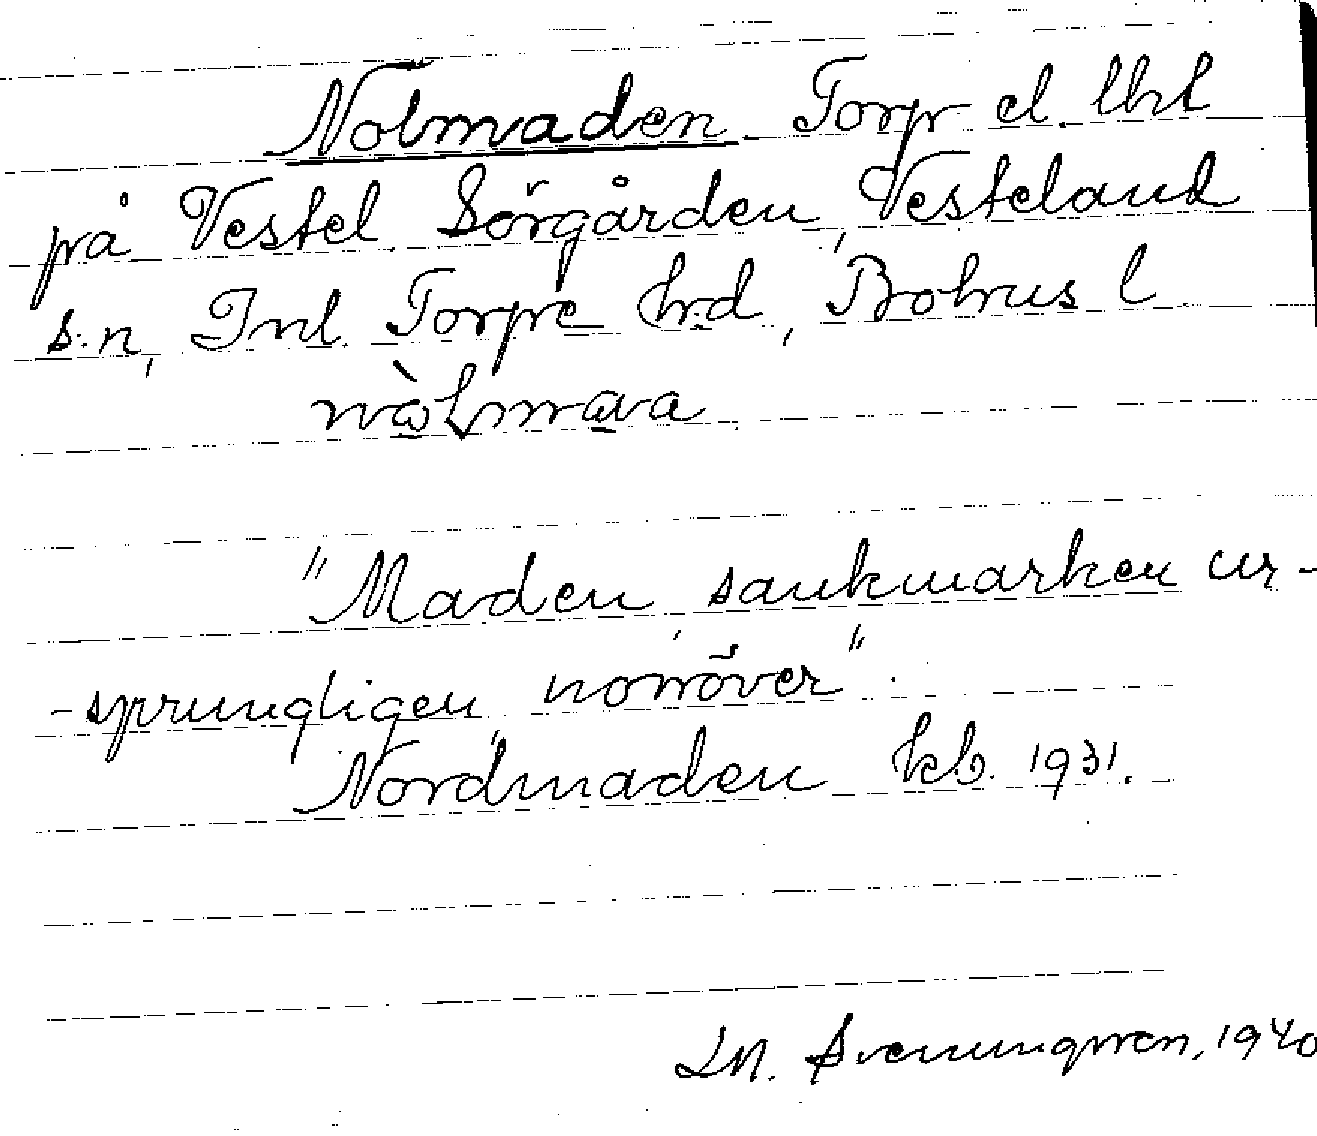 Nolmaden Torp el. lht
på Vestel Sörgården, Vesteland
s:n, Inl. Torpe hrd, Bohus l
nòlmava
"Maden, sankmarken ur-
-sprungligen, norröver".
Nordmaden kb. 1931.
Svenungsson, 1940